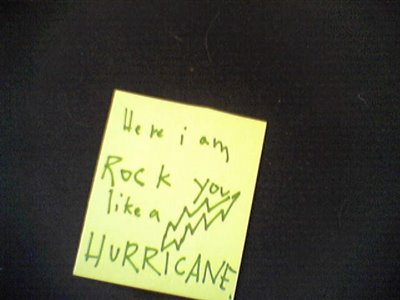 Here i am
Rock you
like a
HURRICANE.